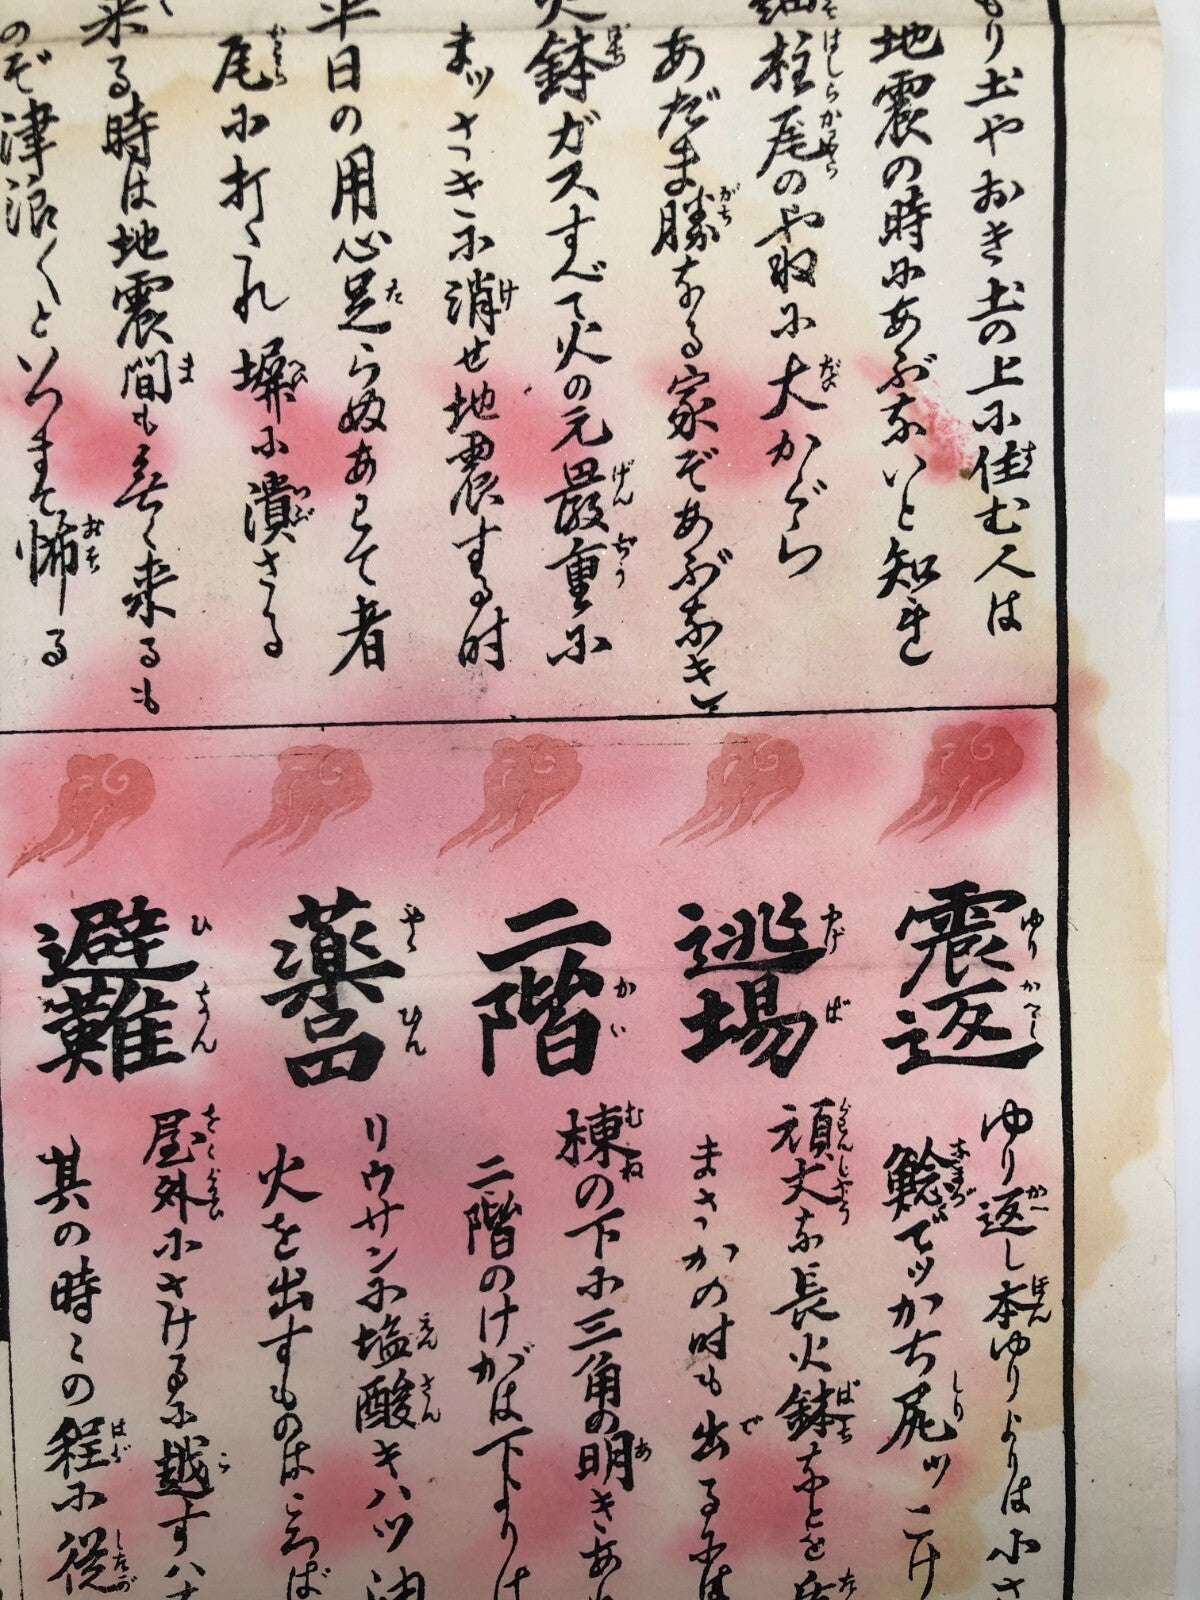 もり土やおき土の上に住む人は
地震の時にあぶないと知れ
柱尾のやねに大かぐら
あだま勝なる家ぞあぶなき
火鉢ガスすべて火の元最重に
まッさきに消せ地震する時
平日の用心足らぬあわて者
尾に打たれ塀に潰さる
来る時は地震間も無く来るも
のぞ津浪〱といつまで怖る
震返
ゆり返し本ゆりよりは小さ
鯰でッかち尻ッこけ
逃場
頑丈な長火鉢などを
まさかの時も出るには
二階
棟の下に三角の明きあ
二階のけがは下よりけ
薬品
リウサンに塩酸キハツ油
火を出すものはころば
避難
屋外にさけるに越すハ
其の時々の程に従